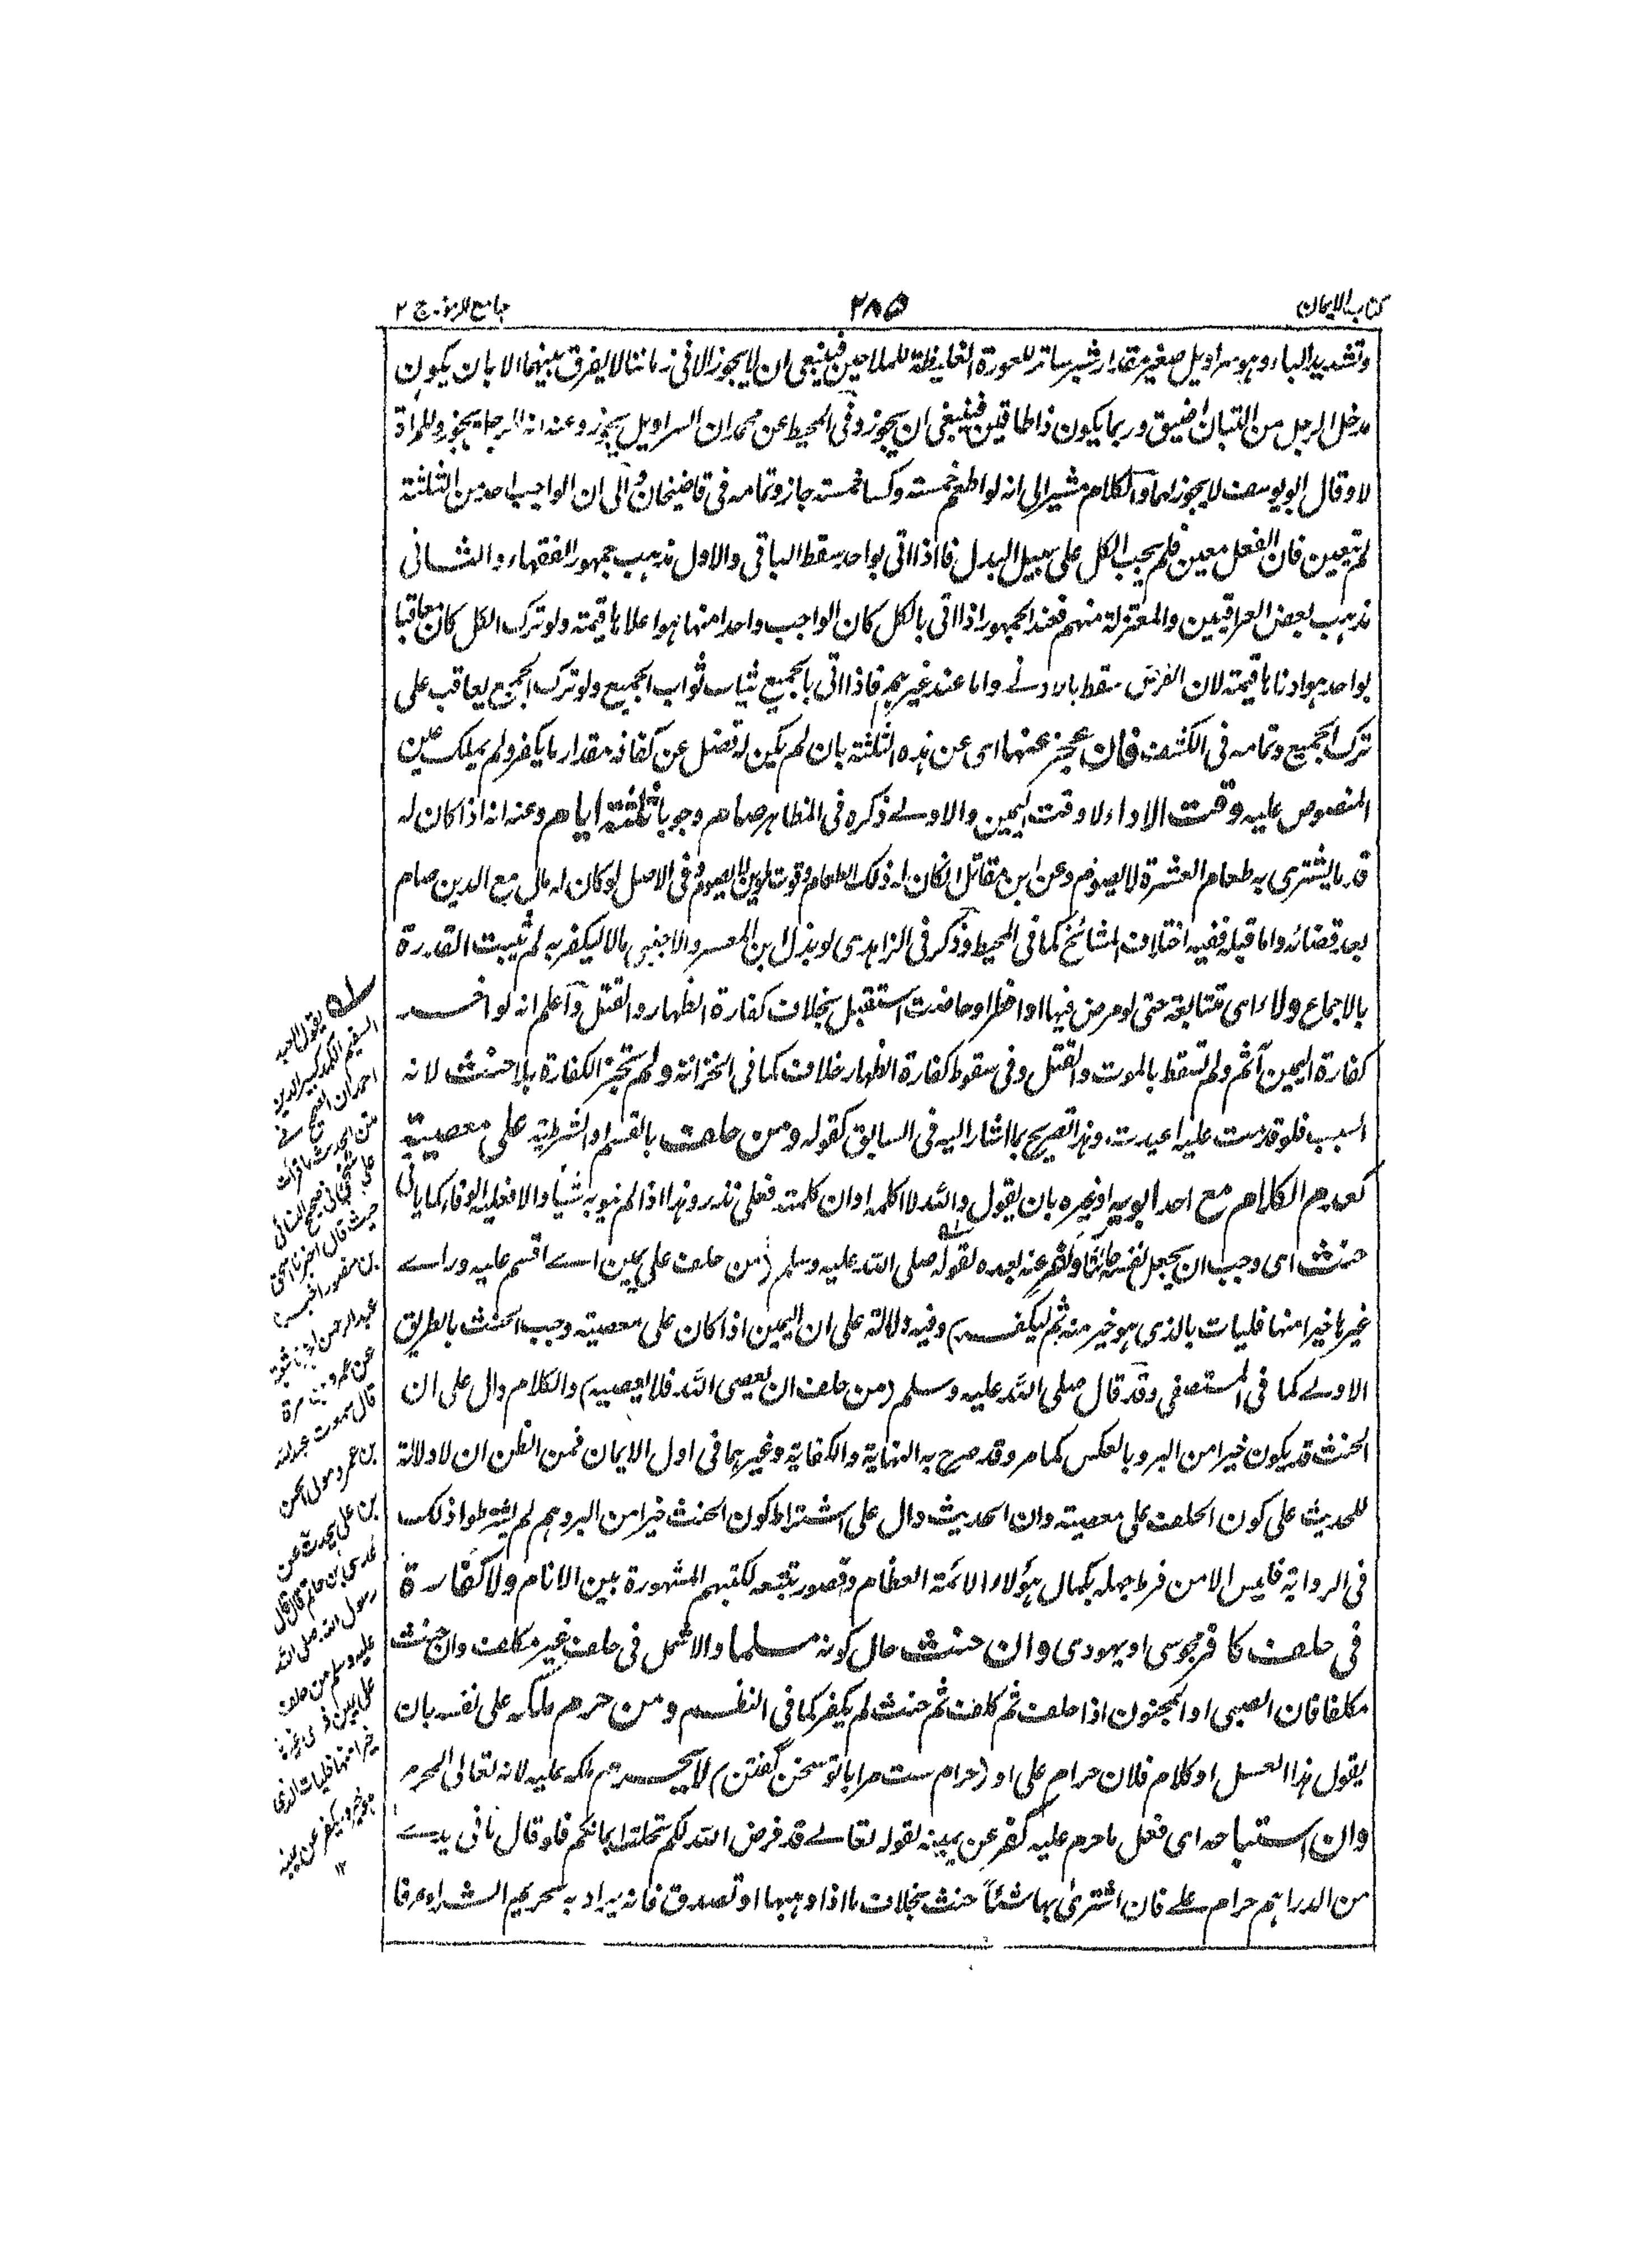 كتاب الايمان
٢٨٥
جامع الرموز ج ٢
وتشديد الباء وهو سراويل صغير مقدار شبر ساتر للعورة الغليظة للملاحين فينبغي ان لا يجوز الا في زماننا لا يفرق بينهما الا بان يكون
مدخل الرجل من التبان اضيق وربما يكون ذا طاقين فينبغي ان يجوز وفي المحيط عن محمد ان السراويل يجوز وعنه انه للرجل يجوز وللمراة
لا وقال ابو يوسف لا يجوز لهما والكلام مشير الى انه لو اطعم خمسة وكسا خمسة جاز وتمامه في قاضيخان والى ان الواجب احد من الثلثة
لم يتعين فان الفعل معين فلم يجب الكل على سبيل البدل فاذا اتى بواحد سقط الباقي والاول مذهب جمهور الفقهاء والثاني
مذهب بعض العراقيين والمعتزلة منهم فعند الجمهور اذا اتى بالكل كان الواجب واحدا منها هو اعلاها قيمة ولو ترك الكل كان معاقبا
بواحد هو ادناها قيمة لان الفرض سقط بالادنى واما عند غيرهم فاذا اتى بالجميع يثاب ثواب الجميع ولو ترك الجميع يعاقب على
ترك الجميع وتمامه في الكشف فان عجز عنها اى عن هذه الثلثة بان لم يكن له فضل عن كفافه مقدار ما يكفر ولم يملك عين
المنصوص عليه وقت الاداء لا وقت اليمين والاولى ذكره في المظاهر صام وجوبا ثلثة ايام وعنه انه اذا كان له
قدر ما يشترى به طعام العشرة لا يصوم وعن ابن مقاتل ان كان له ذلك الطعام وقوت يومين لا يصوم وفي الاصل لو كان له مال مع الدين صام
بعد قضائه واما قبله ففيه اختلاف المشائخ كما في المحيط وذكر في الزاهدى لو بذل ابن المعسر والاجنبي مالا ليكفر به لم تثبت القدرة
بالاجماع ولاء اى متتابعة حتى لو مرض فيها او افطر او حاضت استقبل بخلاف كفارة الظهار والقتل واعلم انه لو اخر
كفارة اليمين أثم ولم تسقط بالموت والقتل وفي سقوط كفارة الظهار خلاف كما في الخزانة ولم تجز الكفارة بلا حنث لانه
السبب فلو قدمت عليه اعيدت وهذا تصريح بما اشار اليه في السابق كقوله ومن حلف بالقسم او الشرطية على معصية
كعدم الكلام مع احد ابويه او غيره بان يقول والله لا اكلمه او ان كلمته فعلى نذر وهذا اذا لم ينو به شيأ والا فعليه الوفاء كما ياتي
حنث اى وجب ان يجعل نفسه حانثا وكفر عنه بعده لقوله صلى الله عليه وسلم (من حلف على يمين اى اقسم عليه وراى
غيرها خيرا منها فليات بالذى هو خير منه ثم ليكفر) وفيه دلالة على ان اليمين اذا كان على معصية وجب الحنث بالطريق
الاولى كما في المستصفى وقد قال صلى الله عليه وسلم (من حلف ان يعصى الله فلا يعصيه) والكلام دال على ان
الحنث قد يكون خيرا من البر وبالعكس كما مر وقد صرح به النهاية والكفاية وغيرهما في اول الايمان فمن الظن ان لا دلالة
للحديث على كون الحلف على معصية وان الحديث دال على اشتراط كون الحنث خيرا من البر وهم لم يشترطوا ذلك
في الرواية فليس الا من فرط جهله بكمال هؤلاء الائمة العظام وقصور تتبعه لكتبهم المشهورة بين الانام ولا كفارة
في حلف كافر مجوسى او يهودى وان حنث حال كونه مسلما والاشمل في حلف غير مكلف وان حنث
مكلفا فان الصبى او المجنون اذا حلف ثم كلف ثم حنث لم يكفر كما في النظم ومن حرم ملكه على نفسه بان
يقول هذا العسل او كلام فلان حرام على او (حرام ست مرا با تو سخن گفتن) لا يحرم ملكه عليه لانه تعالى المحرم
وان استباحه اى فعل ما حرم عليه كفر عن يمينه لقوله تعالى قد فرض الله لكم تحلة ايمانكم فلو قال ما في يدى
من الدراهم حرام على فان اشترى بها شيئا حنث بخلاف ما اذا وهبها او تصدق فانه يراد به تحريم الشراء عرفا
يقول العبد
السقيم الكمد كبير الدين
احمد ان الصحيح في
متن الحديث ما قرأت
على شيخى في صحيح النسائي
حيث قال اخبرنا اسحق
بن منصور اخبرنا
عبد الرحمن حدثنا شعبة
عن عمرو بن مرة
قال سمعت عبد الله
بن عمرو مولى الحسن
بن على يحدث عن
عدى بن حاتم قال قال
رسول الله صلى الله
عليه وسلم من حلف
على يمين فرأى غيرها
خيرا منها فليات الذى
هو خير وليكفر عن يمينه
١٢